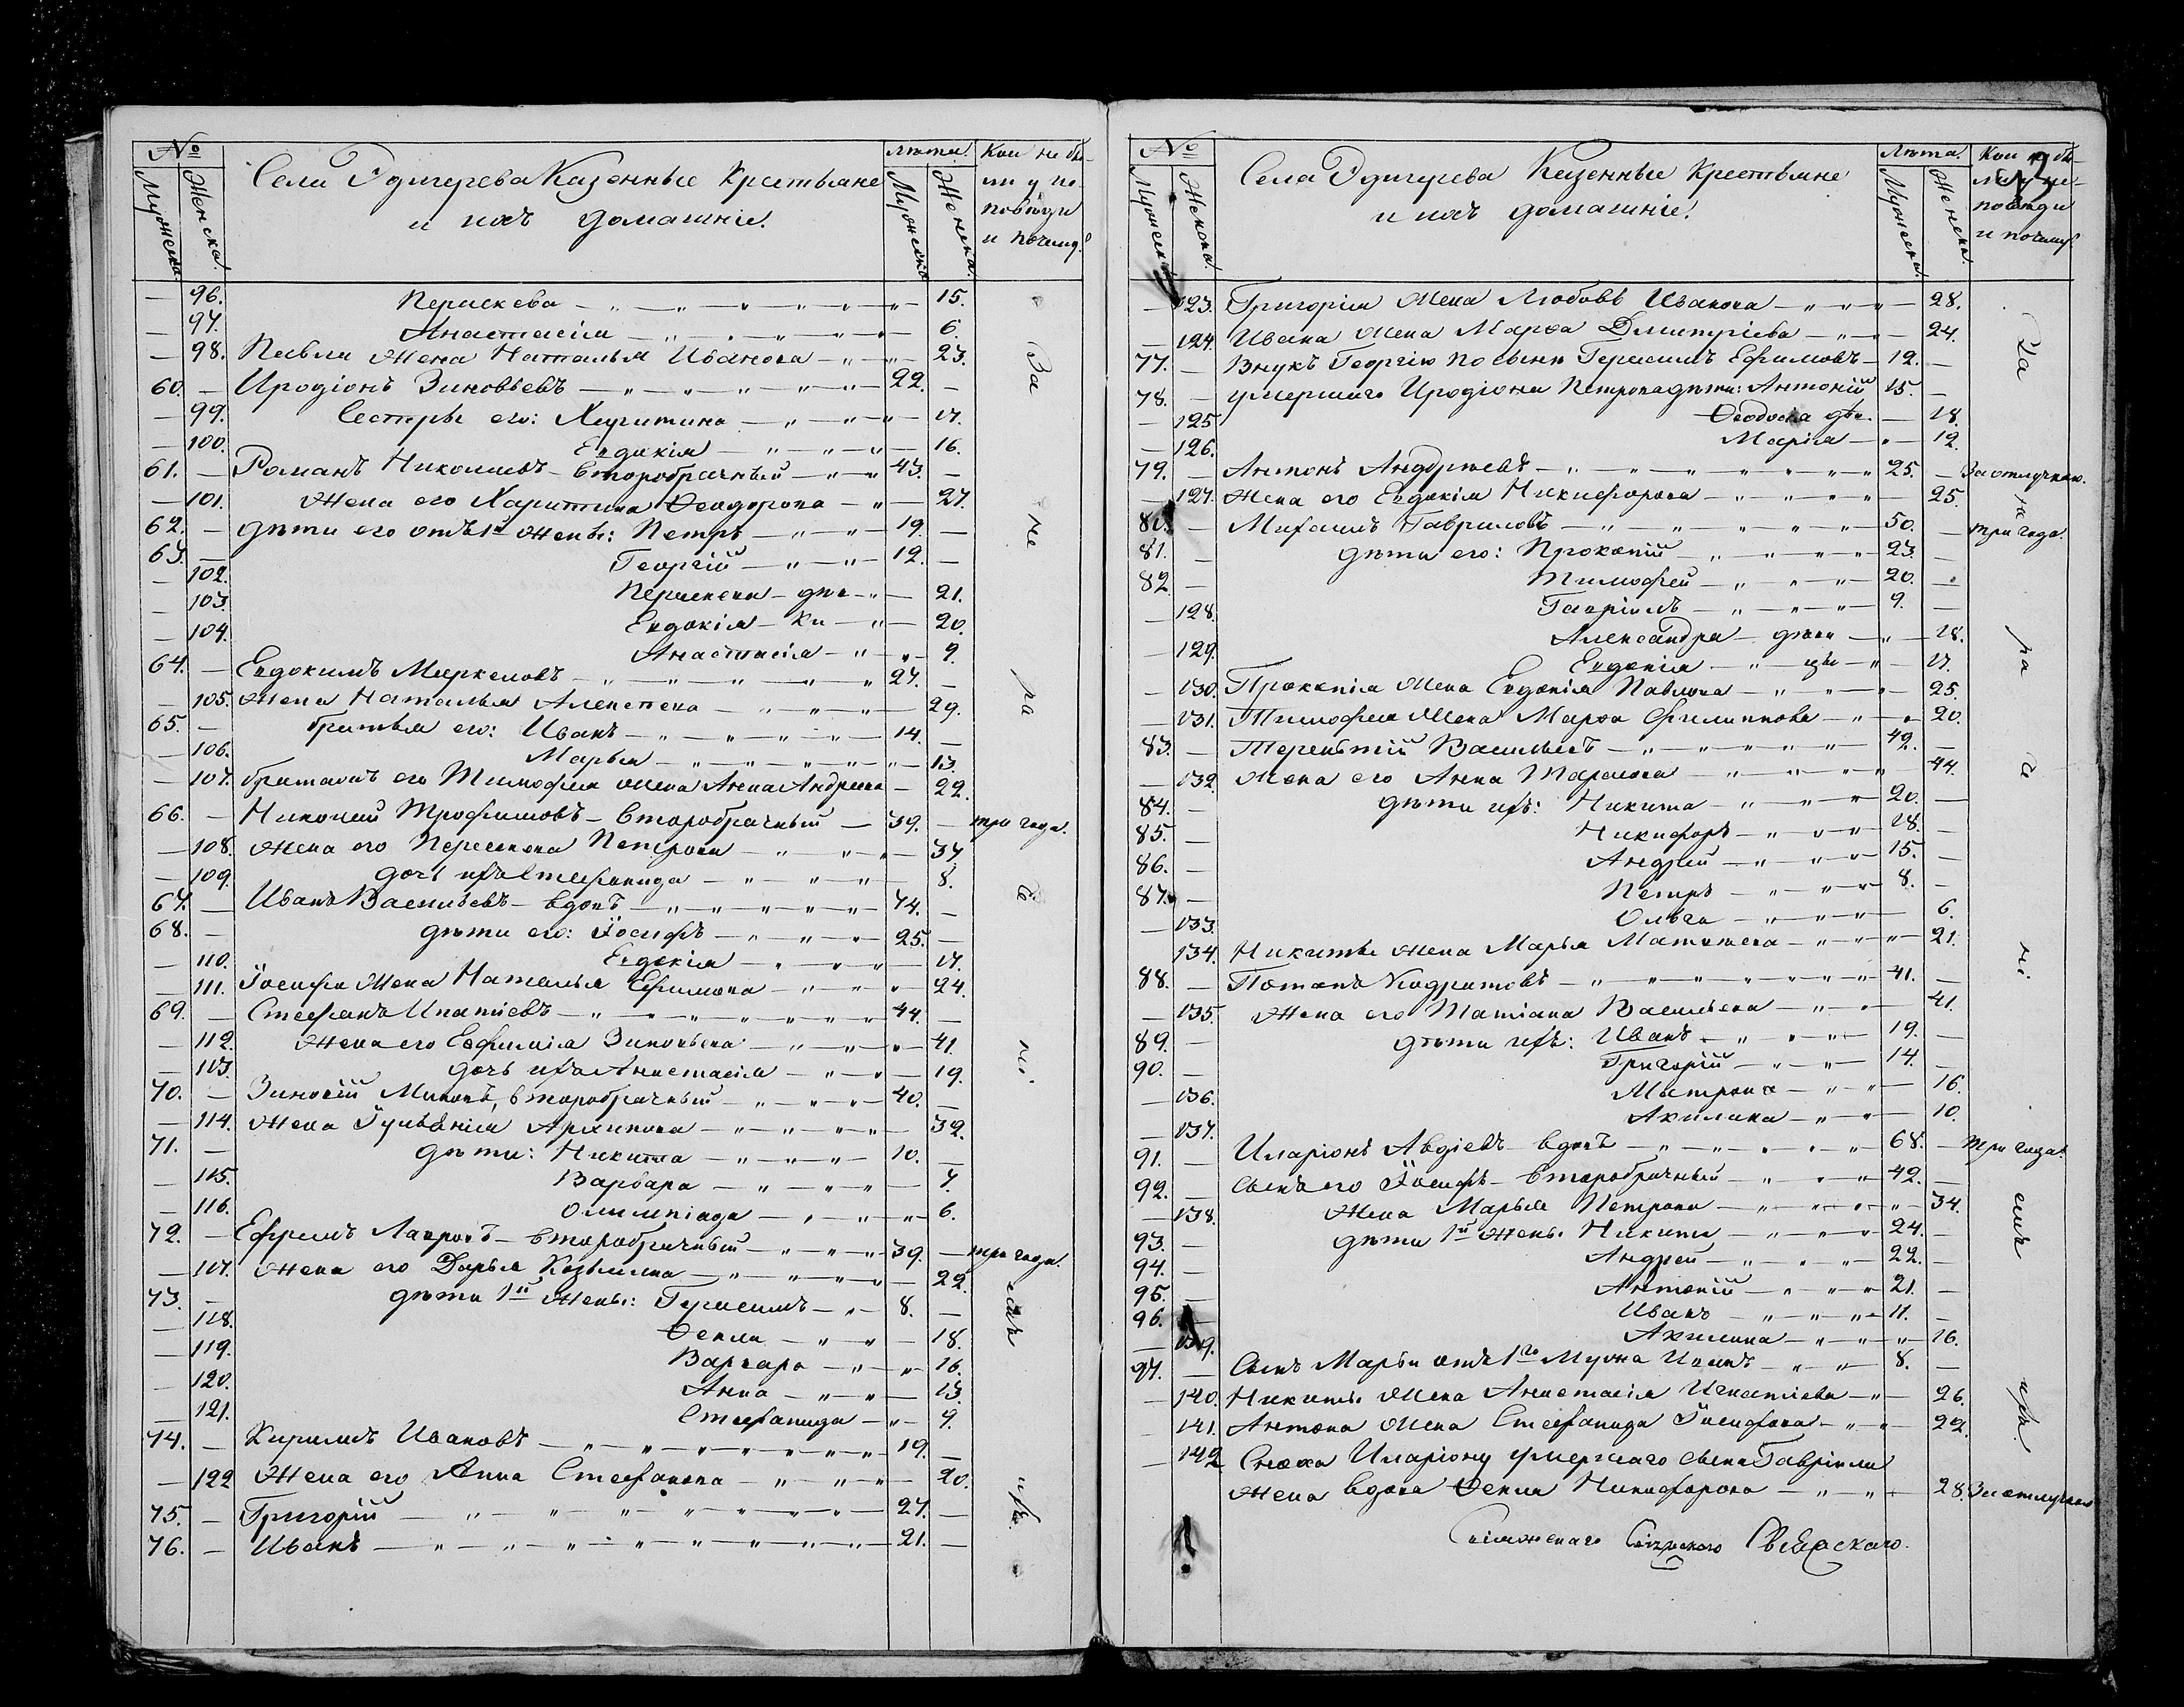 №
Мужеска
Женска.
Села Эдигерева Казенные Крестьяне
и ихъ домашніе.
Лѣта.
Мужеска
Женска.
Кои не бы-
ли у ис-
повѣди
и почему?
— 96. Параскева — 15.
— 97. Анастасія — 6.
— 98. Павла жена Наталья Иванова — 23.
60. — Иродіонъ Зиновьевъ — 22. —
— 99. Сестры его: Харитина — 17.
— 100. Евдокія — 16.
61. — Романъ Николаевъ второбрачный — 43. —
— 101. Жена его Харитина Ѳеодорова — 27.
62. — дѣти его отъ 1й жены: Петръ — 19. —
63. — Георгій — 12. —
— 102. Параскева — дѣв. — 21.
— 103. Евдокія — 20.
— 104. Анастасія — 9.
64. — Евдокимъ Маркеловъ — 27. —
— 105. Жена Наталья Алексѣева — 29.
65. — братья его: Иванъ — 14. —
— 106. Марья — 13.
— 107. братанъ его Тимофея жена Анна Андреева — 22.
66. — Николай Трофимовъ — второбрачный — 39. — три года.
— 108. Жена его Параскева Петрова — 37.
— 109. дочь ихъ Стефанида — 8.
67. — Иванъ Васильевъ — вдовъ — 74. —
68. — дѣти его: Іосифъ — 25. —
— 110. Евдокія — 17.
— 111. Іосифа жена Наталья Ефимова — 24.
69. — Стефанъ Ипатіевъ — 44. —
— 112. Жена его Евфимія Зиновьева — 41.
— 113. дочь ихъ Анастасія — 19.
70. — Зиновій Мироновъ, второбрачный — 40. —
— 114. Жена Гуліанія Архипова — 32.
71. — дѣти: Никита — 10. —
— 115. Варвара — 7.
— 116. Олимпіада — 6.
72. — Ефремъ Лавровъ — второбрачный — 39. — три года.
— 117. Жена его Дарья Козьмина — 22.
73. — дѣти 1й жены: Герасимъ — 8. —
— 118. Ѳекла — 18.
— 119. Варвара — 16.
— 120. Анна — 13.
— 121. Стефанида — 9.
74. — Кирилъ Ивановъ — 19. —
— 122 Жена его Анна Стефанова — 20.
75. — Григорій — 27. —
76. — Иванъ — 21. —
За
не
ра
с
ні
емъ
ихъ.
№
Мужеска
Женска.
Села Эдигерева Казенные Крестьяне
и ихъ домашніе.
Лѣта.
Мужеска.
Женска.
Кои не бы-
ли у ис-
повѣди
и почему?
— 123. Григорія жена Любовь Иванова — 28.
— 124. Ивана жена Марѳа Дмитріева — 24.
77. — Внукъ Георгію по сынѣ Герасимъ Ефимовъ — 12. —
78. — умершаго Иродіона Петрова дѣти: Антоній 15. —
— 125 Ѳеодосья дѣв. — 18.
— 126. Марія — 12
79. — Антонъ Андреевъ — 25. — За отлучкою.
— 127. Жена его Евдокія Никифорова — 25.
80. — Михаилъ Гавриловъ — 50. — три года.
81. — дѣти его: Прокопій — 23. —
82 — Тимофей — 20. —
— 128. Гавріилъ — 9. —
Александра — дѣвки — 18.
— 129. Евдокія — 17.
— 130. Прокопія жена Евдокія Павлова — 25.
— 131. Тимофея жена Марѳа Филиппова — 20.
83. — Терентій Васильевъ — 49. —
— 132. Жена его Анна Тарасова — 44.
84. — дѣти ихъ: Никита — 20. —
85. — Никифоръ — 18. —
86. — Андрей — 15. —
87. — Петръ — 8. —
— 133. Ольга — 6.
134. Никиты жена Марья Матвѣева — 21.
88. — Потапъ Кодратовъ — 41. —
— 135. Жена его Татіана Васильева — 41.
89. — дѣти ихъ: Иванъ — 19. —
90. — Григорій — 14. —
— 136. Матрона — 16.
— 137. Акилина — 10.
91. — Иларіонъ Авдіевъ — вдовъ — 68. — три года.
92. — Сынъ его Іосифъ — второбрачный — 42. —
— 138. Жена Марья Петрова — 34.
93. — дѣти 1й жены. Никита — 24. —
94. — Андрей — 22. —
95. — Антоній — 21. —
96. — Иванъ — 11. —
— 139. Акилина — 16.
97. — Сынъ Марьи отъ 1го мужа — 8. —
— 140. Никиты жена Анастасія Игнатіева — 26.
141. Антона жена Стефанида Іосифова — 22.
— 142 Сноха Иларіону умершаго сына Гавріила
Жена вдова Ѳекла Никифорова — 28. За отлучкою
За
не
ра
с
ні
емъ
ихъ.